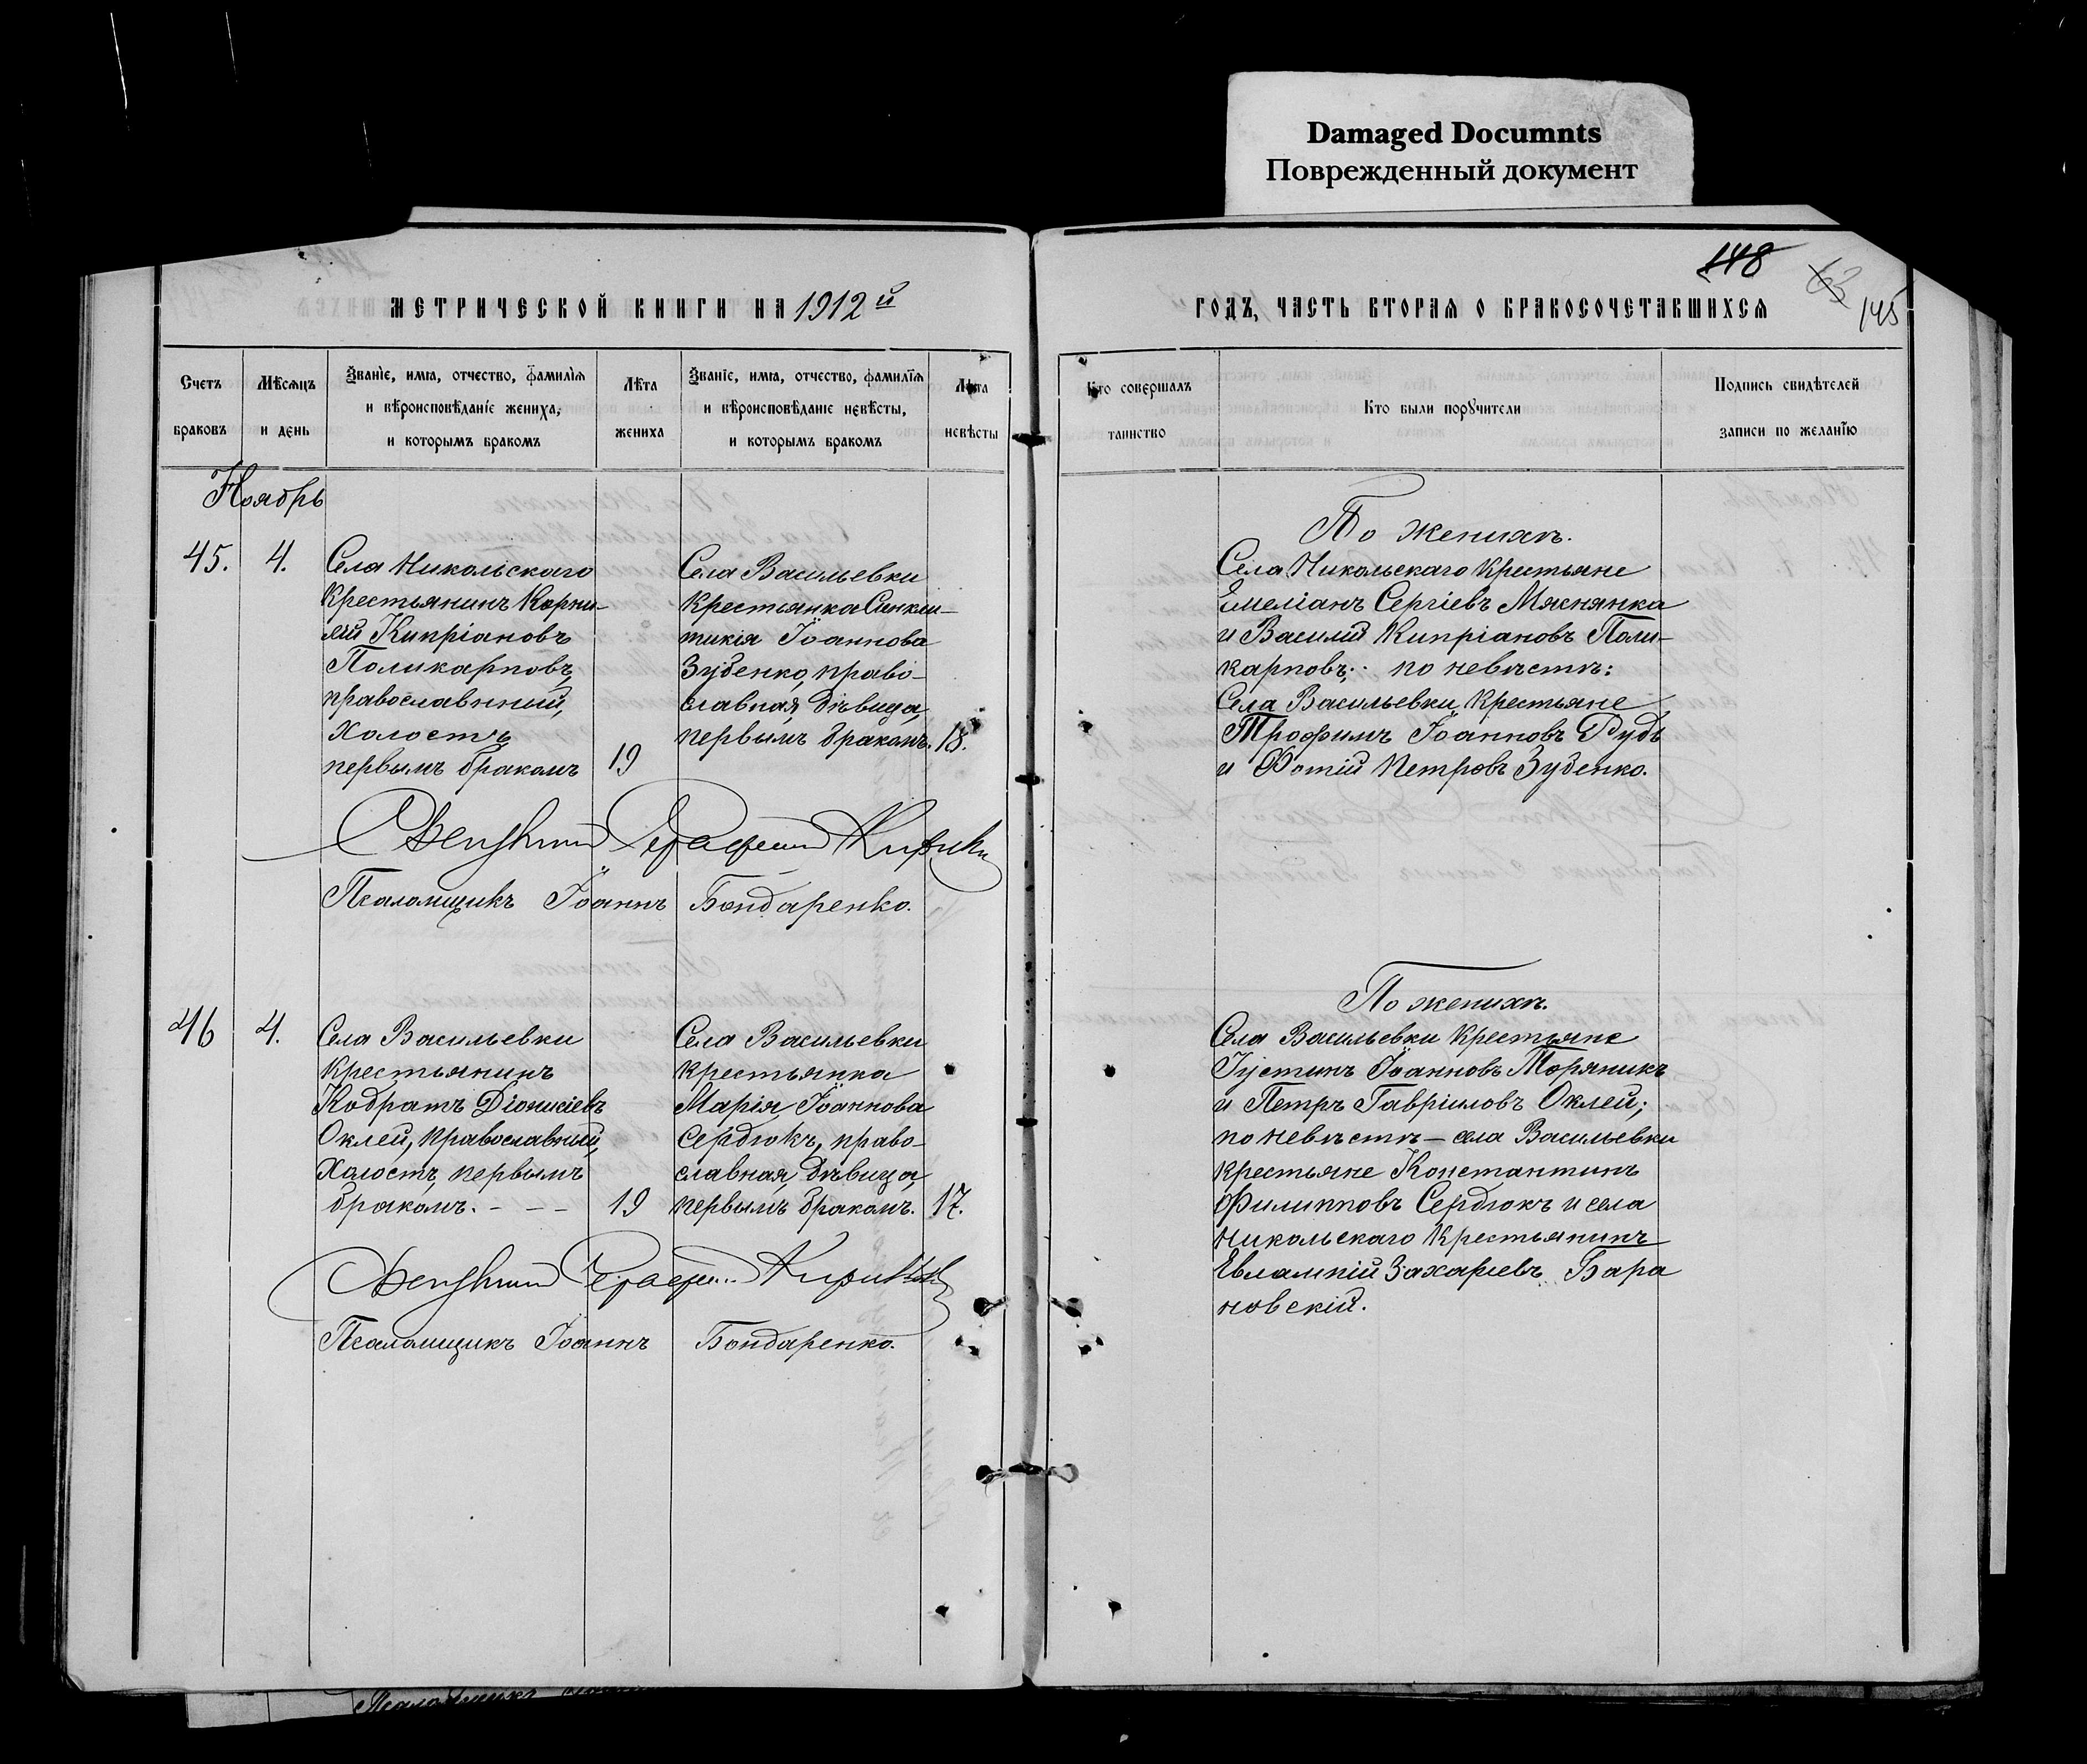 Damaged Documnts
Поврежденный документ
148
63
145
МЕТРИЧЕСКОЙ КНИГИ НА 1912й
ГОДЪ, ЧАСТЬ ВТОРАЯ О БРАКОСОЧЕТАВШИХСЯ
Счетъ браковъ
Мѣсяцъ и день
Званіе, имя, отчество, фамилія
и вѣроисповѣданіе жениха,
и которымъ бракомъ
Лѣта жениха
Званіе, имя, отчество, фамилія
и вѣроисповѣданіе невѣсты,
и которымъ бракомъ
Лѣта невѣсты
Кто совершалъ таинство
Кто были поручители
Подпись свидѣтелей
записи по желанію
Ноябрь
45.
4.
Села Никольскаго
крестьянинъ Корни-
лій Кипріановъ
Поликарповъ,
православный,
холостъ,
первымъ бракомъ
19
Села Васильевки
крестьянка Синкли-
тикія Іоаннова
Зубенко, право-
славная, дѣвица,
первымъ бракомъ.
18.
По женихѣ.
Села Никольскаго крестьяне
Емеліанъ Сергіевъ Мяснянка
и Василій Кипріановъ Поли-
карповъ; по невѣстѣ:
Села Васильевки крестьяне
Трофимъ Іоанновъ Рудь
и Фотій Петровъ Зубенко.
Псаломщикъ Іоаннъ Бондаренко.
46
4.
Села Васильевки
крестьянинъ
Кодратъ Діонисіевъ
Оклей, православный,
холостъ, первымъ
бракомъ. - - -
19
Села Васильевки
крестьянка
Марія Іоаннова
Сердюкъ, право-
славная, дѣвица,
первымъ бракомъ.
17.
По женихѣ.
Села Васильевки крестьяне
Іустинъ Іоанновъ Моряникъ
и Петръ Гавріиловъ Оклей;
по невѣстѣ - села Васильевки
крестьяне Константинъ
Филипповъ Сердюкъ и села
Никольскаго крестьянинъ
Евлампій Захаріевъ Бара
новскій.
Псаломщикъ Іоаннъ Бондаренко.